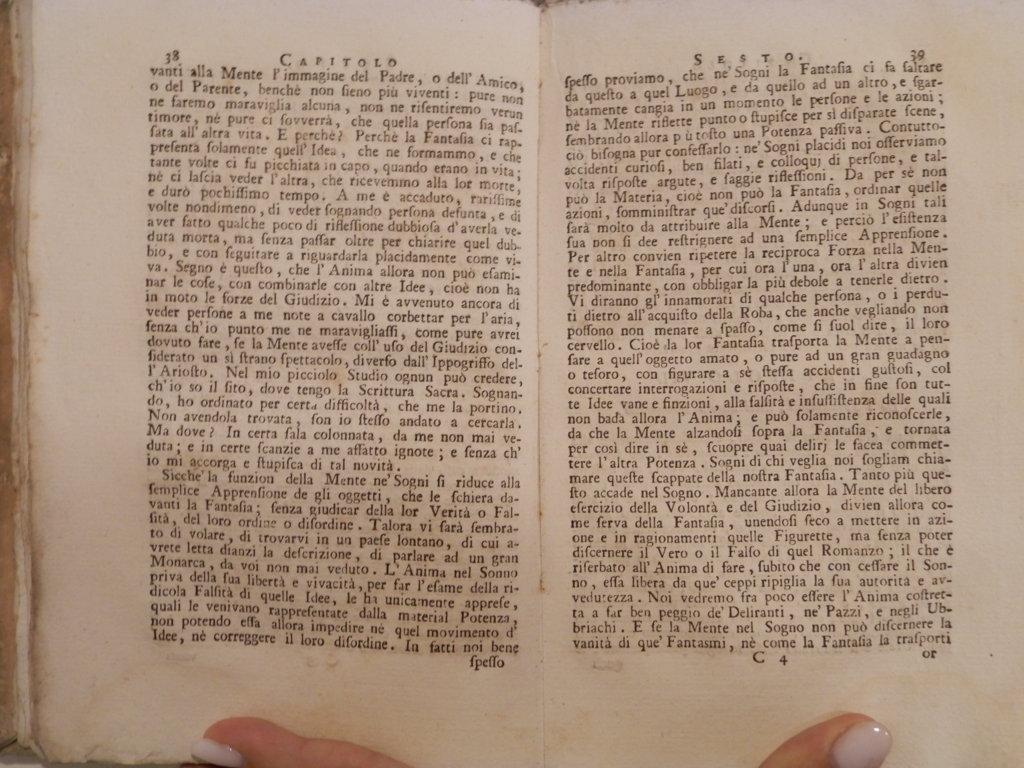 38
CAPITOLO
vanti alla Mente l'immagine del Padre, o dell'Amico,
o del Parente, benchè non ſieno più viventi: pure non
ne faremo maraviglia alcuna, non ne riſentiremo verun
timore, nè pure ci ſovverrà, che quella perſona ſia paſ-
ſata all'altra vita. E perchè? Perchè la Fantaſia ci rap-
preſenta ſolamente quell'Idea, che ne formammo, e che
tante volte ci fu picchiata in capo, quando erano in vita;
nè ci laſcia veder l'altra, che ricevemmo alla lor morte,
e durò pochiſſimo tempo. A me è accaduto, rariſſime
volte nondimeno, di veder ſognando perſona defunta, e di
aver fatto qualche poco di rifleſſione dubbioſa d'averla ve-
duta morta, ma ſenza paſſar oltre per chiarire quel dub-
bio, e con ſeguitare a riguardarla placidamente come vi-
va. Segno è queſto, che l'Anima allora non può eſami-
nar le coſe, con combinarle con altre Idee, cioè non ha
in moto le forze del Giudizio. Mi è avvenuto ancora di
veder perſone a me note a cavallo corbettar per l'aria,
ſenza ch'io punto me ne maravigliaſſi, come pure avrei
dovuto fare, ſe la Mente aveſſe coll'uſo del Giudizio con-
ſiderato un sì ſtrano ſpettacolo, diverſo dall'Ippogriffo del-
l'Arioſto. Nel mio picciolo Studio ognun può credere,
ch'io ſo il ſito, dove tengo la Scrittura Sacra. Sognan-
do, ho ordinato per certa difficoltà, che me la portino.
Non avendola trovata, ſon io ſteſſo andato a cercarla.
Ma dove? In certa ſala colonnata, da me non mai ve-
duta; e in certe ſcanzie a me affatto ignote; e ſenza ch'
io mi accorga e ſtupiſca di tal novità.
Sicchè la funzion della Mente ne' Sogni ſi riduce alla
ſemplice Apprenſione de gli oggetti, che le ſchiera da-
vanti la Fantaſia; ſenza giudicar della lor Verità o Fal-
ſità, del loro ordine o diſordine. Talora vi ſarà ſembra-
to di volare, di trovarvi in un paeſe lontano, di cui a-
vrete letta dianzi la deſcrizione, di parlare ad un gran
Monarca, da voi non mai veduto. L'Anima nel Sonno
priva della ſua libertà e vivacità, per far l'eſame della ri-
dicola Falſità di quelle Idee, le ha unicamente appreſe,
quali le venivano rappreſentate dalla material Potenza,
non potendo eſſa allora impedire nè quel movimento d'
Idee, nè correggere il loro diſordine. In fatti noi bene
ſpeſſo
SESTO.
39
ſpeſſo proviamo, che ne' Sogni la Fantaſia ci fa ſaltare
da queſto a quel Luogo, e da quello ad un altro, e ſgar-
batamente cangia in un momento le perſone e le azioni;
nè la Mente riflette punto o ſtupiſce per sì diſparate ſcene,
ſembrando allora più toſto una Potenza paſſiva. Contutto-
ciò biſogna pur confeſſarlo: ne' Sogni placidi noi oſſerviamo
accidenti curioſi, ben filati, e colloquj di perſone, e tal-
volta riſpoſte argute, e ſaggie rifleſſioni. Da per sè non
può la Materia, cioè non può la Fantaſia, ordinar quelle
azioni, ſomminiſtrar que' diſcorſi. Adunque in Sogni tali
ſarà molto da attribuire alla Mente; e perciò l'eſiſtenza
ſua non ſi dee reſtrignere ad una ſemplice Apprenſione.
Per altro convien ripetere la reciproca Forza nella Men-
te e nella Fantaſia, per cui ora l'una, ora l'altra divien
predominante, con obbligar la più debole a tenerle dietro.
Vi diranno gl'innamorati di qualche perſona, o i perdu-
ti dietro all'acquiſto della Roba, che anche vegliando non
poſſono non menare a ſpaſſo, come ſi ſuol dire, il loro
cervello. Cioè la lor Fantaſia traſporta la Mente a pen-
ſare a quell'oggetto amato, o pure ad un gran guadagno
o teſoro, con figurare a sè ſteſſa accidenti guſtoſi, col
concertare interrogazioni e riſpoſte, che in fine ſon tut-
te Idee vane e finzioni, alla falſità e inſuſſiſtenza delle quali
non bada allora l'Anima; e può ſolamente riconoſcerle,
da che la Mente alzandoſi ſopra la Fantaſia, e tornata
per così dire in sè, ſcuopre quai delirj le facea commet-
tere l'altra Potenza. Sogni di chi veglia noi ſogliam chia-
mare queſte ſcappate della noſtra Fantaſia. Tanto più que-
ſto accade nel Sogno. Mancante allora la Mente del libero
eſercizio della Volontà e del Giudizio, divien allora co-
me ſerva della Fantaſia, unendoſi ſeco a mettere in azi-
one e in ragionamenti quelle Figurette, ma ſenza poter
diſcernere il Vero o il Falſo di quel Romanzo; il che è
riſerbato all'Anima di fare, ſubito che con ceſſare il Son-
no, eſſa libera da que' ceppi ripiglia la ſua autorità e av-
vedutezza. Noi vedremo fra poco eſſere l'Anima coſtret-
ta a far ben peggio de' Deliranti, ne' Pazzi, e negli Ub-
briachi. E ſe la Mente nel Sogno non può diſcernere la
vanità di que' Fantasmi, nè come la Fantaſia la traſporti
C 4
or